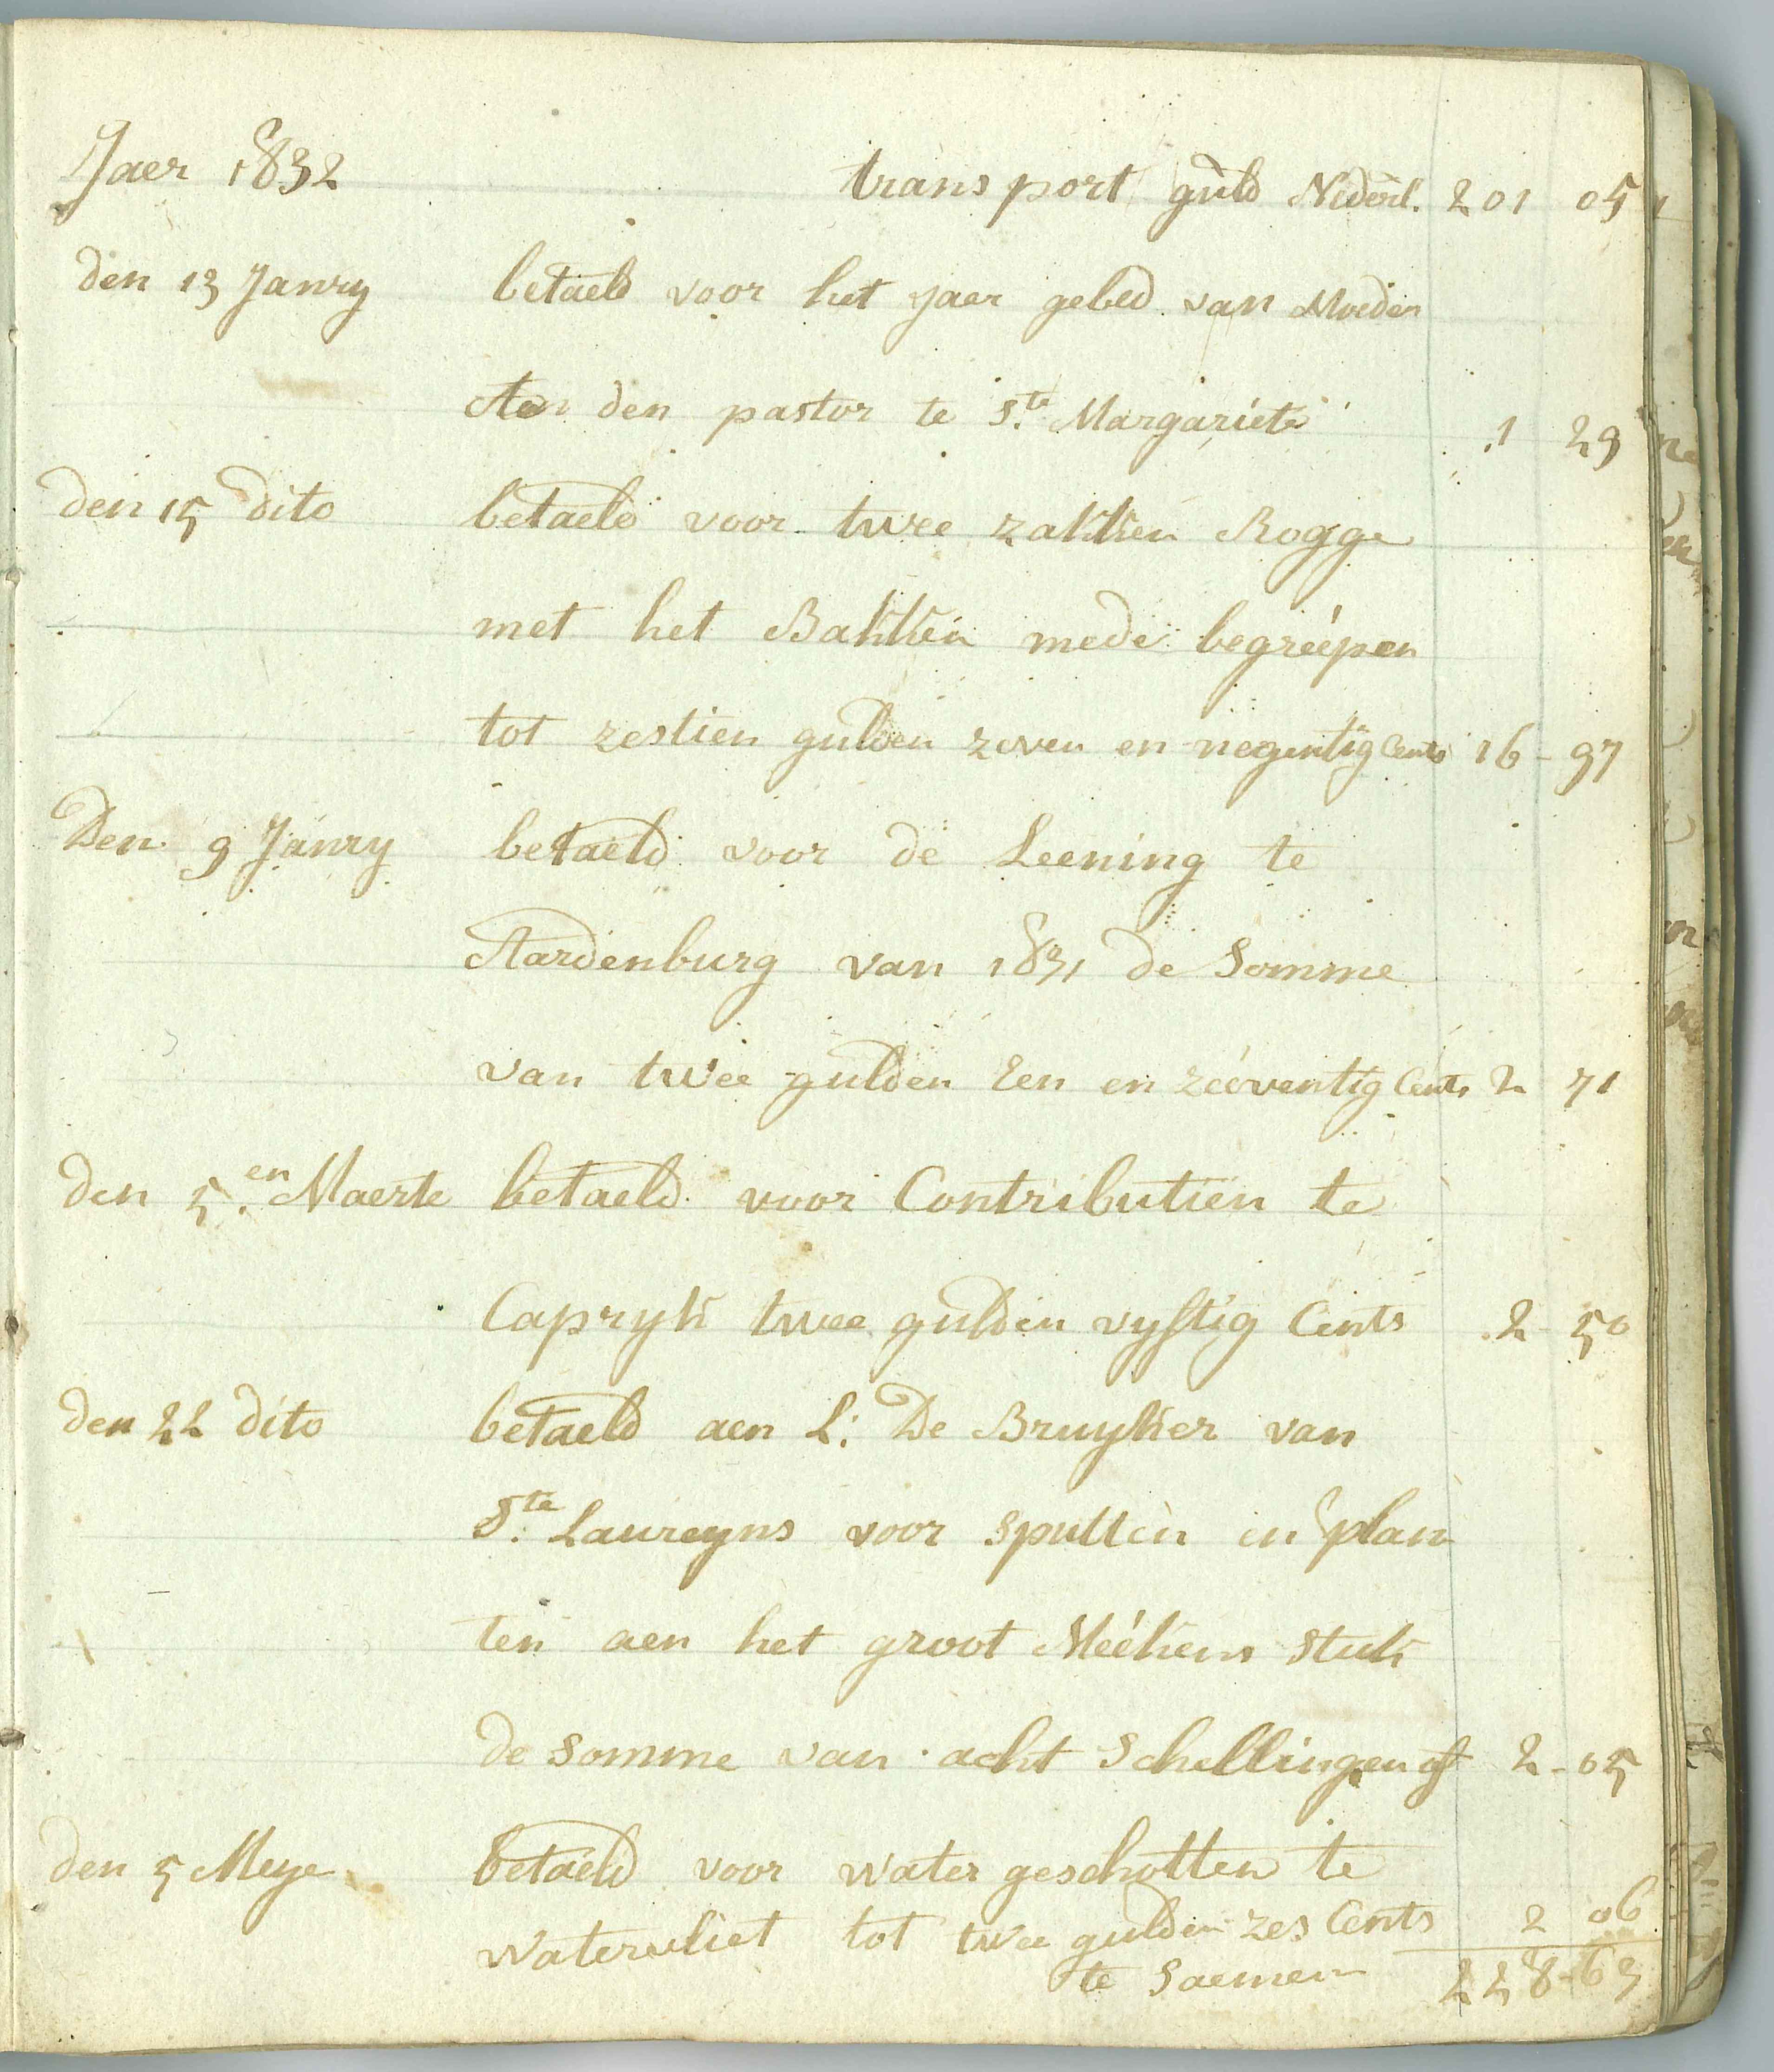 Jaer 1832 transport guld Nederl. 201 05
den 13 Janry betaeld voor het jaer gebed van Moeder
Aen den pastor te S.te Margariete 1 29
den 15 dito betaeld voor twee zakken Rogge
met het Bakken mede begreépen
tot zestien gulden zeven en negentig Cents 16 - 97
Den 9 Janry betaeld voor de Leening te
Aardenburg van 1831 de Somme
van twee gulden Een en zéeventig Cents 2 71
den 5.en Maerte betaeld voor Contributien te
Capryk twee gulden vyftig Cents 2 - 50
den 22 dito betaeld aen L: De Bruyker van
S.te Laureyns voor sputten en plan
ten aen het groot Méékens stuk
de somme van acht Schellingen of 2 - 05
den 5 Meye betaeld voor water geschotten te
Watervliet tot twee gulden zes Cents 2 06
te Saemen 228 - 63